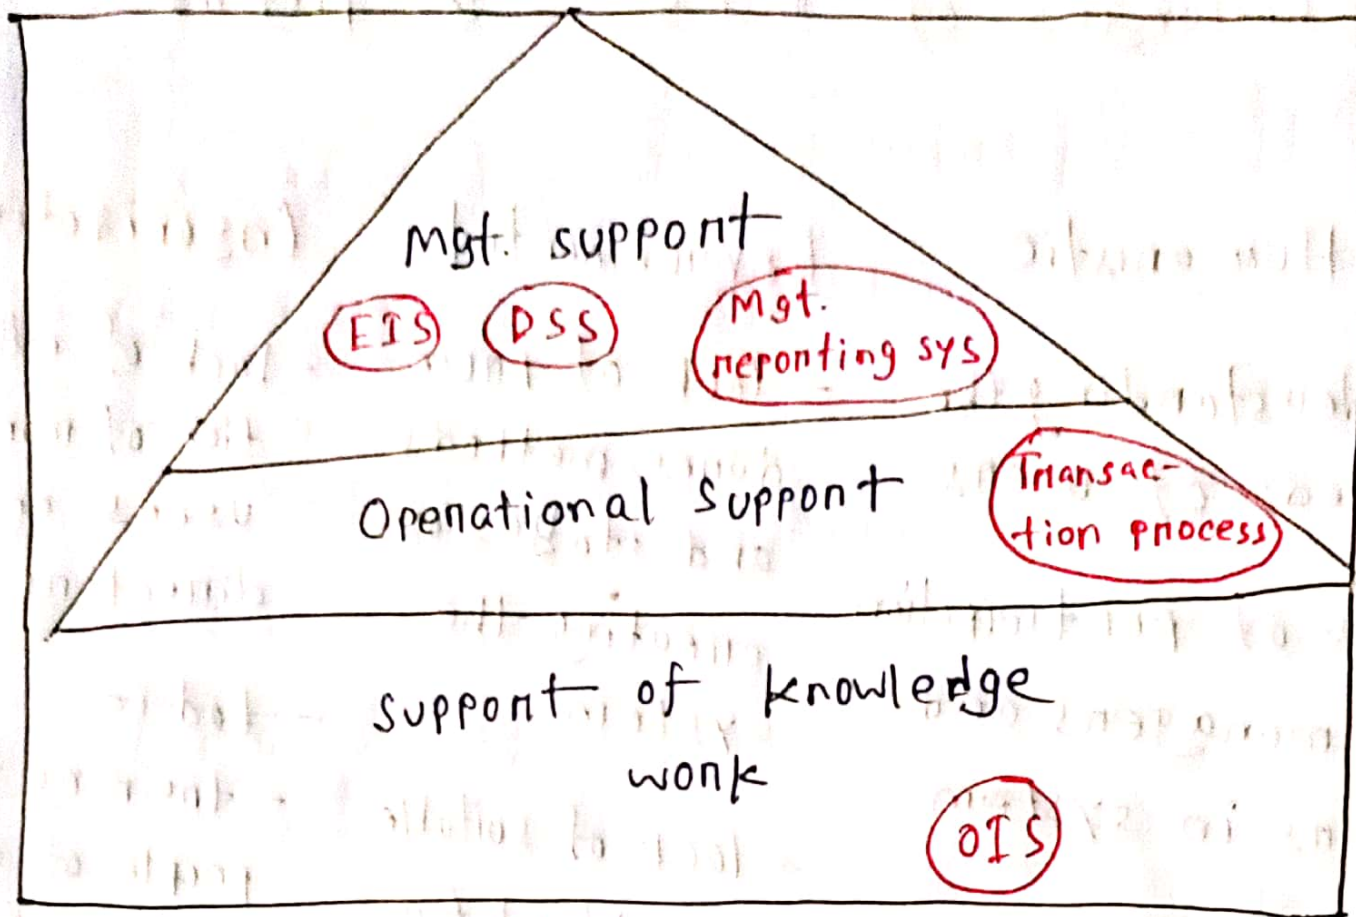 Mgt. support
EIS DSS Mgt.
reporting sys
Operational support
Transac-
tion process
support of knowledge
work
OIS